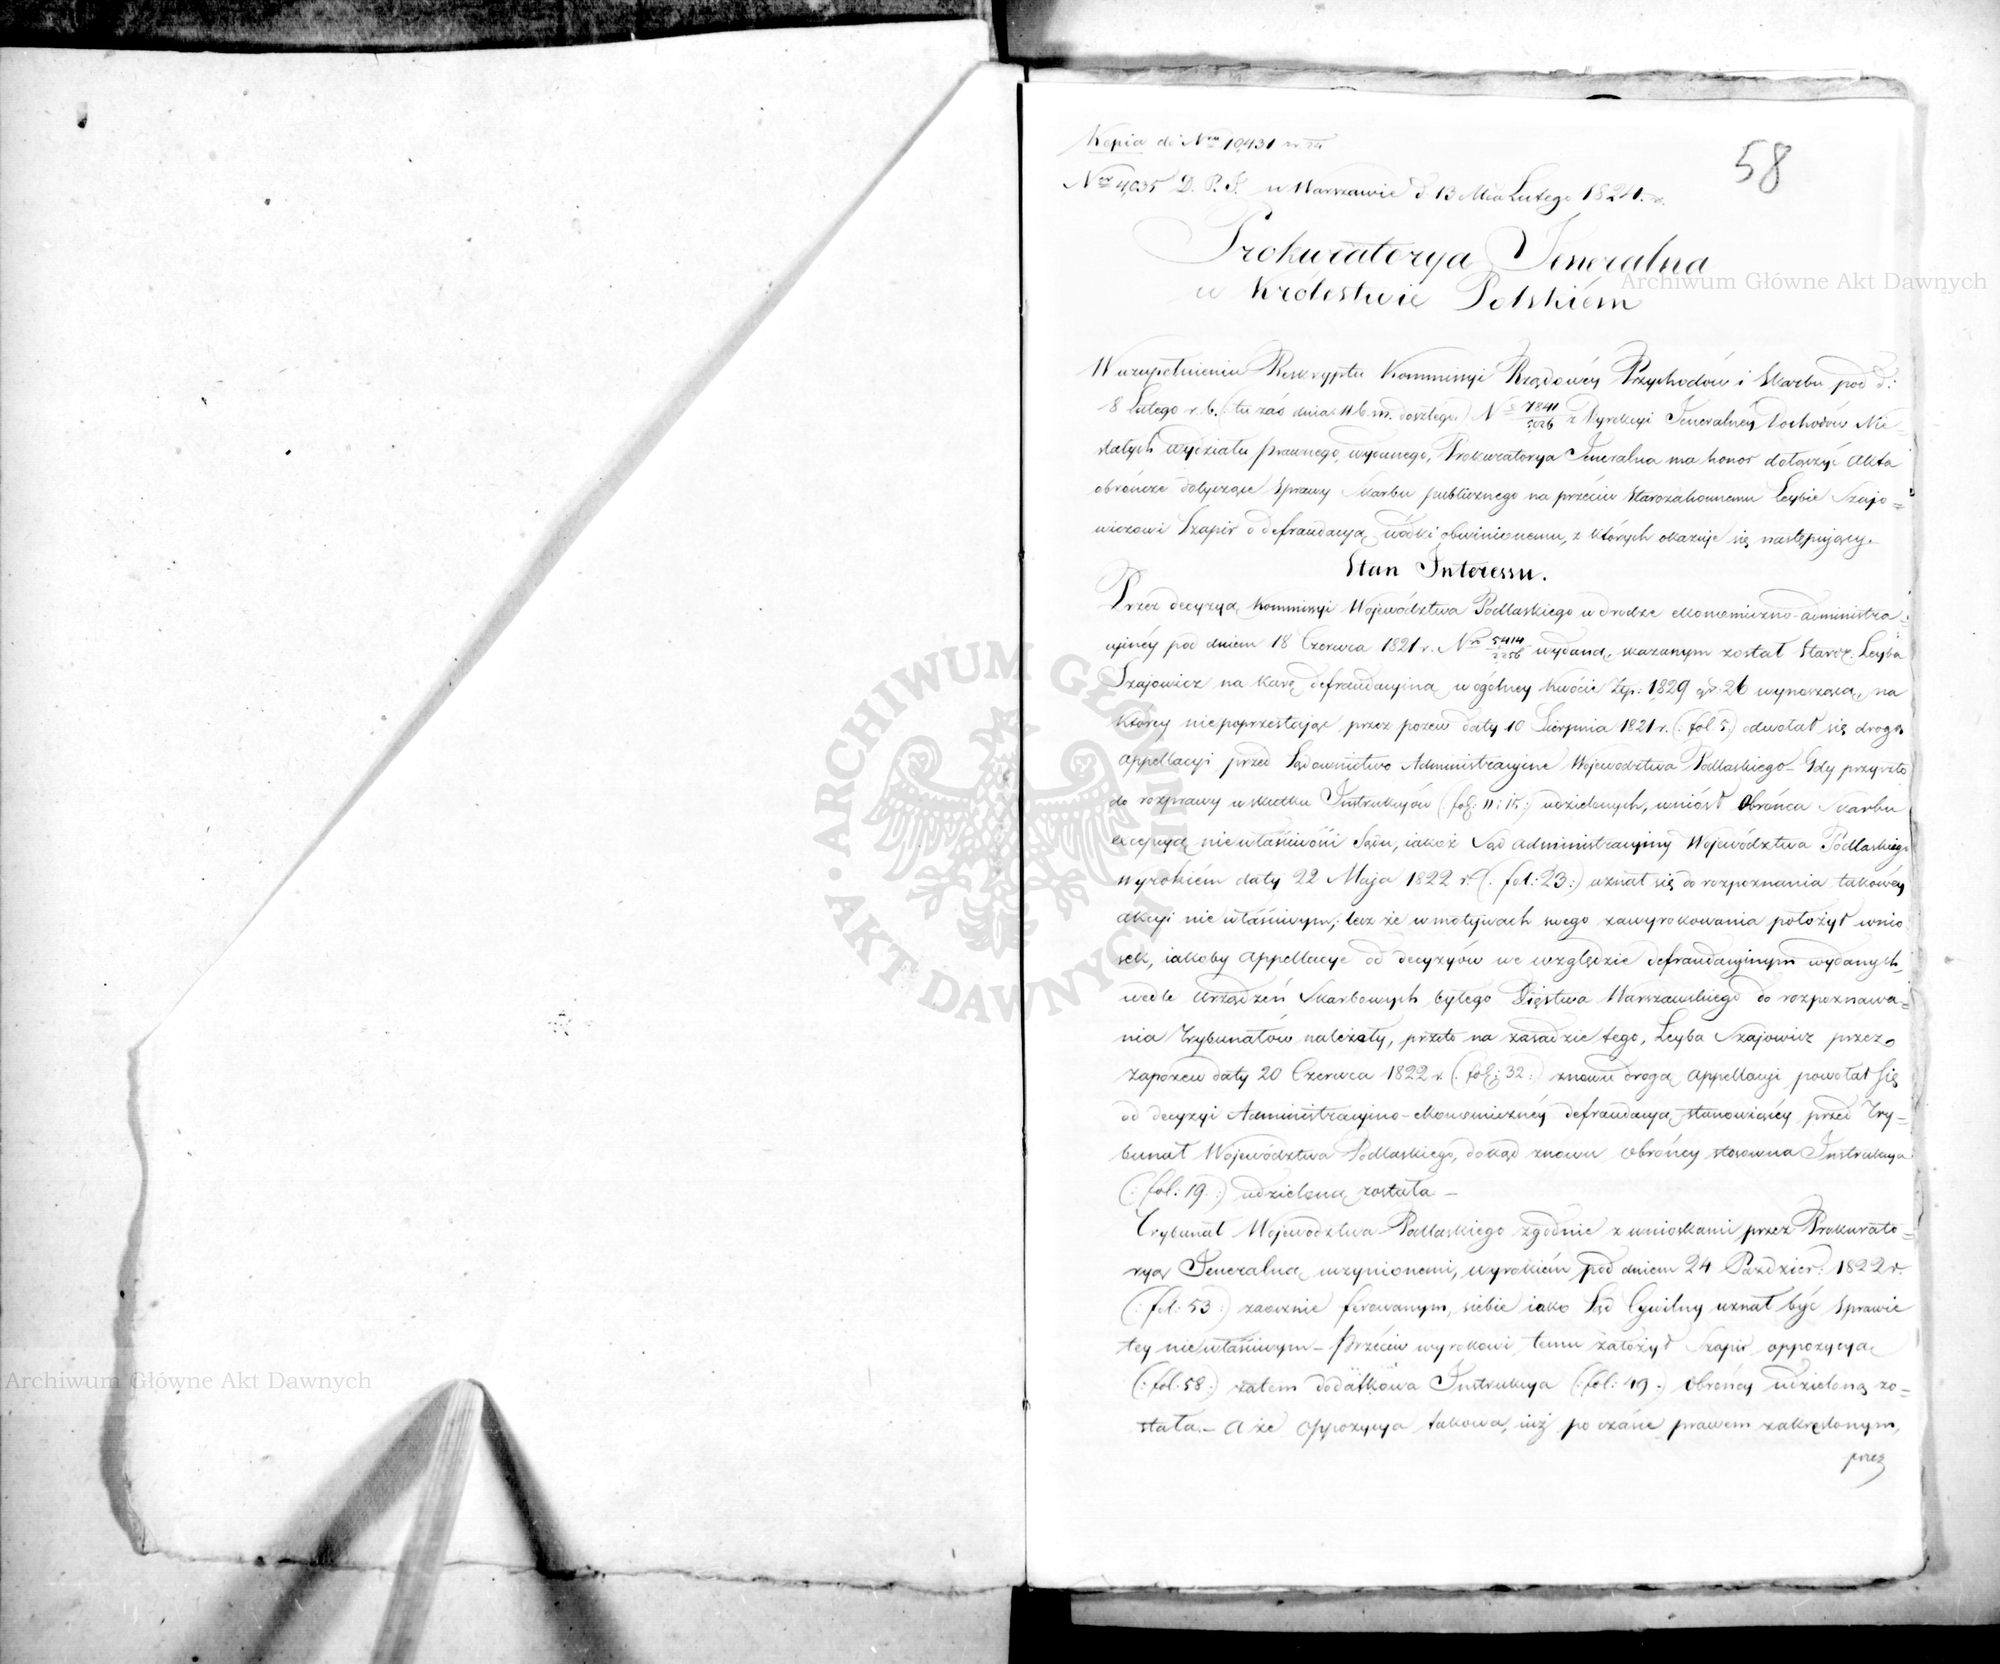 Kopia do Nru 10,431
58
Nro 4,035 D. P. J. w Warszawie d 13 Mca Lutego 1824. r.
Prokuratorya Jeneralna
w Królestwie Polskiém
W uzupełnieniu Reskryptu Kommissyi Rządowéy Przychodów i Skarbu pod d:
8 Lutego r. b. (: tu zaś dnia 11 b. m. doszłego:) N 7841/5026 z Dyrekcyi Jeneralnéy Dochodów Nie-
stałych Wydziału prawnego, wydanego, Prokuratorya Jeneralna ma honor dołączyć Akta
obrończe dotyczące Sprawy Skarbu publicznego na przeciw Starozakonnemu Leybie Szajo=
wiczowi Szapir o defraudacyą wódki obwinionemu, z których okazuje się następujący.
Stan Interessu.
Przez decyzyą Kommissyi Województwa Podlaskiego w drodze ekonomiczno-administra-
cyjnéy pod dniem 18 Czerwca 1821 r. Nro 5414/2256 wydaną, skazanym został Staroz. Leyba
Szajowicz na karę defraudacyiną w ogólney kwocie Złp: 1,829 gr: 26 wynoszącą, na
którey niepoprzestając przez pozew daty 10 Sierpnia 1821 r. (: fol 5:) odwołał się drogą
appellacyi przed Sądownictwo Administracyine Województwa Podlaskiego – Gdy przyszło
do rozprawy w skutku Instrukcyów (: fol: 11: i 15:) udzielonych, wniósł Obrońca Skarbu
excepcyą niewłaściwości Sądu, iakoż Sąd Administracyiny Województwa Podlaskiego
Wyrokiém daty 22 Maja 1822 r. (: fol: 23:) uznał się do rozpoznania takowéy
akcyi niewłaściwym; lecz że w motywach swego zawyrokowania położył wnio
sek, iakoby Appellacye od decyzyów we względzie defraudacyinym wydanych,
wedle Urządzeń Skarbowych byłego Xięstwa Warszawskiego do rozpoznawa=
nia Trybunałów należały, przeto na zasadzie tego, Leyba Szajowicz przez
Zapozew daty 20 Czerwca 1822 r. (: fol: 32:) znowu drogą appellacyi powołał się
od decyzyi Administracyino-ekonomicznéy defraudacyą stanowiącéy przed Try-
bunał Województwa Podlaskiego, dokąd znowu Obrońcy stosowna Instrukcya
(: fol: 19:) udzieloną została –
Trybunał Województwa Podlaskiego zgodnie z wnioskami przez Prokurato=
ryą Jeneralną uczynionemi, wyrokiém pod dniem 24 Paździer: 1822 r.
(: fol: 53:) zaocznie ferowanym, siebie iako Sąd Cywilny uznał być Sprawie
tey niewłaściwym – Przeciw wyrokowi temu założył Szapir oppozycyą
(: fol: 58:) zatem dodatkowa Instrukcya (: fol: 49:) Obrońcy udzieloną zo=
stała. – A że Oppozycya takowa, iuż po czasie prawem zakreślonym,
przez
Archiwum Główne Akt Dawnych
Archiwum Główne Akt Dawnych
ARCHIWUM GŁÓWNE AKT DAWNYCH